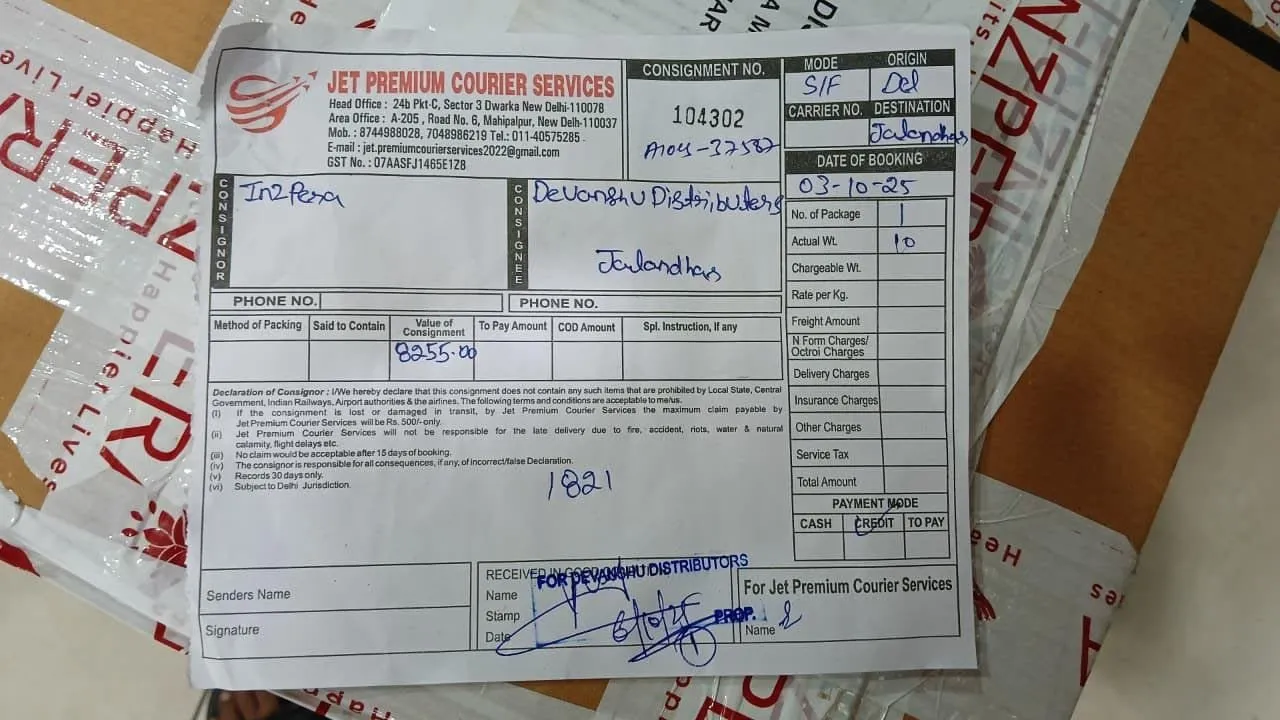 JET PREMIUM COURIER SERVICES
Head Office : 24b Pkt-C, Sector 3 Dwarka New Delhi-110078
Area Office : A-205 , Road No. 6, Mahipalpur, New Delh-110037
Mob. : 8744988028, 7048986219 Tel.: 011-40575285
E-mail : jet.premiumcourierservices2022@gmail.com
GST No. : 07AASFJ1465E1Z8
CONSIGNMENT NO.
104302
A104-37587
MODE
S/F
ORIGIN
Del
CARRIER NO.
DESTINATION
Jalandhar
DATE OF BOOKING
03-10-25
CONSIGNOR
In2Pera
CONSIGNEE
Devanshu Distributers
Jalandhar
PHONE NO.
PHONE NO.
No. of Package 1
Actual Wt. 10
Chargeable Wt.
Rate per Kg.
Freight Amount
N Form Charges/
Octroi Charges
Delivery Charges
Insurance Charges
Other Charges
Service Tax
Total Amount
Method of Packing
Said to Contain
Value of
Consignment
To Pay Amount
COD Amount
Spl. Instruction, If any
8255.00
Declaration of Consignor : I/We hereby declare that this consignment does not contain any such items that are prohibited by Local State, Central
Government, Indian Railways, Airport authorities & the airlines. The following terms and conditions are acceptable to me/us.
(I) If the consignment is lost or damaged in transit, by Jet Premium Courier Services the maximum claim payable by
Jet Premium Courier Services will be Rs. 500/-only.
(ii) Jet Premium Courier Services will not be responsible for the late delivery due to fire, accident, riots, water & natural
calamity, flight delays etc.
(iii) No claim would be acceptable after 15 days of booking.
(iv) The consignor is responsible for all consequences, if any, of incorrect/false Declaration.
(v) Records 30 days only.
(vi) Subject to Delhi Jurisdiction.
1821
PAYMENT MODE
CASH
CREDIT
TO PAY
Senders Name
Signature
RECEIVED IN GOOD
FOR DEVANSHU DISTRIBUTORS
Name
Stamp
Date
6/10/25
PROP.
1
For Jet Premium Courier Services
Name
Happier Lives